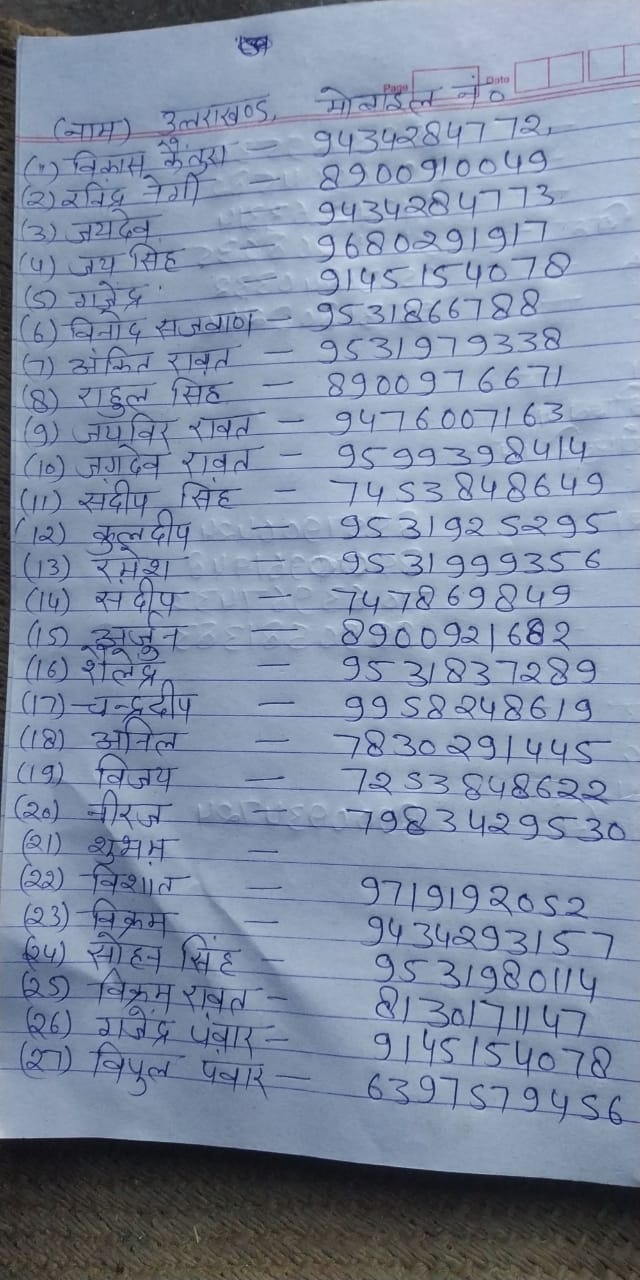 Page Date
(नाम) उत्तराखण्ड, मोबाईल नं०
(1) विकास कैंतुरा — 9434284772,
(2) रविंद्र नेगी — 8900910049
(3) जयदेव — 9434284773
(4) जय सिंह — 9680291917
(5) गजेंद्र — 9145154078
(6) विनोद सजवाण — 9531866788
(7) अंकित रावत — 9531979338
(8) राहुल सिंह — 8900976671
(9) जयविर रावत — 9476007163
(10) जगदेव रावत — 9599398414
(11) संदीप सिंह — 7453848649
(12) कुलदीप — 9531925295
(13) रमेश — 9531999356
(14) संदीप — 747869849
(15) अर्जुन — 8900921682
(16) शैलेंद्र — 9531837289
(17) चन्द्रदीप — 9958248619
(18) अनिल — 7830291445
(19) विजय — 7253848622
(20) नीरज — 7983429530
(21) शुभम —
(22) विशाल — 9719192052
(23) विक्रम — 9434293157
(24) सोहन सिंह — 9531980114
(25) विक्रम रावत — 8130171147
(26) गजेंद्र पंवार — 9145154078
(27) विपुल पंवार — 6397579456